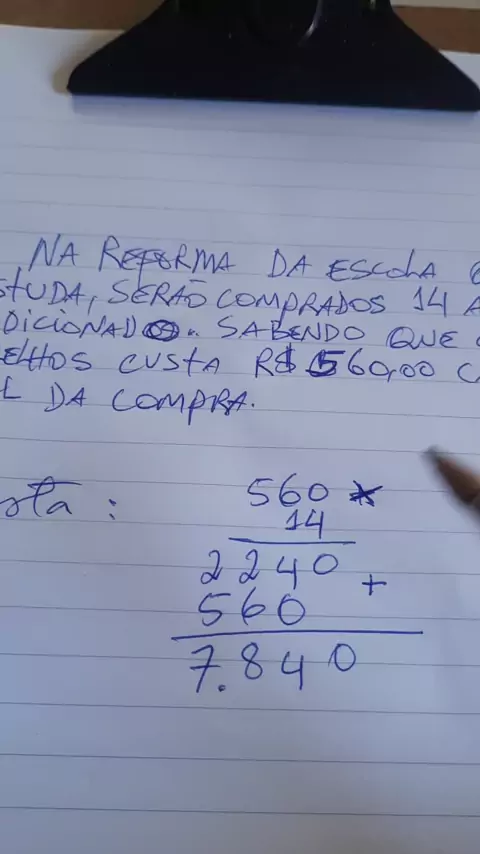 NA REFORMA DA ESCOLA
STUDA, SERÃO COMPRADOS 14 A
DICIONADOS. SABENDO QUE
ELHOS CUSTA R$ 560,00 C
L DA COMPRA.
sta : 560 x
14
2240 +
560
7.840